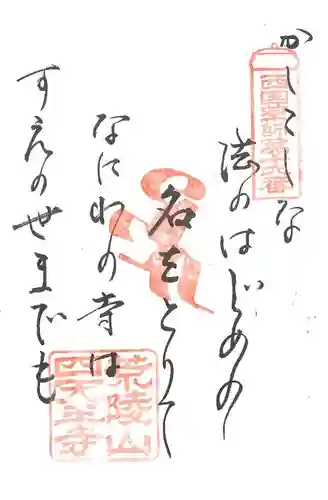 かしこしな
法のはじめの
名をとりて
なにわの寺は
すえのせまでも
西国薬師第十六番
荒陵山
四天王寺